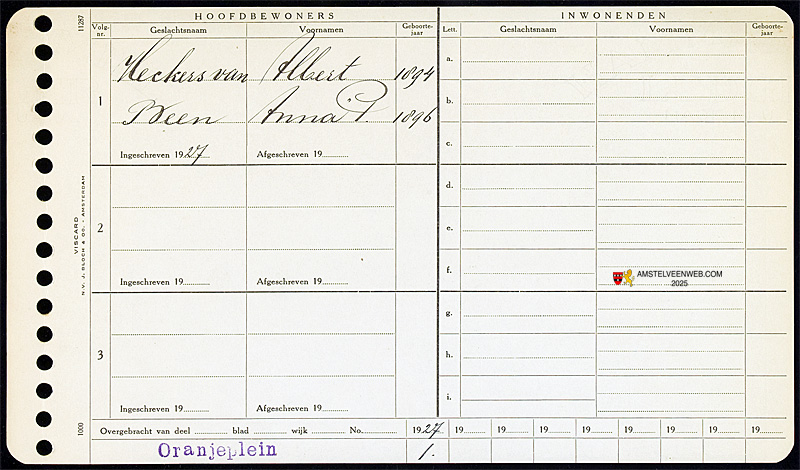 HOOFDBEWONERS
INWONENDEN
Volg-nr.
Geslachtsnaam
Voornamen
Geboorte-jaar
Lett.
Geslachtsnaam
Voornamen
Geboorte-jaar
11287
1
Heckers van Albert 1894
Anna P. 1896
Ingeschreven 1927
Afgeschreven 19
2
Ingeschreven 19
Afgeschreven 19
3
Ingeschreven 19
Afgeschreven 19
a.
b.
c.
d.
e.
f.
g.
h.
i.
AMSTELVEENWEB.COM
2025
VISCARD
N.V. J. BLOCH & CO. - AMSTERDAM
1000
Overgebracht van deel blad wijk No.
1927 19 19 19 19 19 19 19 19
Oranjeplein
1.